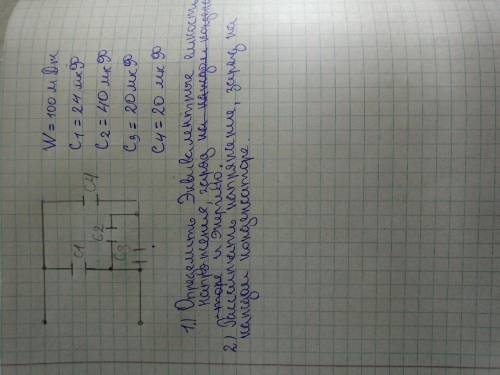 C1
C2
C3
C4
W = 100 мДж
C1 = 24 мкФ
C2 = 40 мкФ
C3 = 20 мкФ
C4 = 20 мкФ
1) Определить Эквивалентные емкость
напряжение, заряд на каждом
-торе и энергию.
2) Рассчитать напряжение, заряд на
каждом конденсаторе.